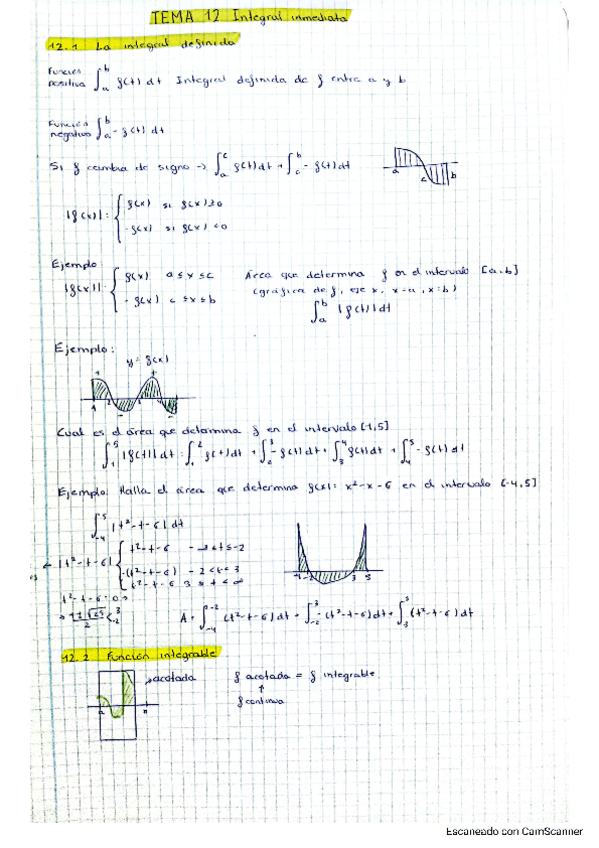 TEMA 12 Integral inmediata
12.1 La integral definida
Función positiva ∫_a^b f(t) dt Integral definida de f entre a y b
Función negativa ∫_a^b -f(t) dt
Si f cambia de signo -> ∫_a^c f(t)dt + ∫_c^b -f(t)dt
a c b
|f(x)|: { f(x) si f(x)≥0
-f(x) si f(x)<0
Ejemplo:
|f(x)|: { f(x) a≤x≤c Área que determina f en el intervalo [a,b]
-f(x) c≤x≤b (gráfica de f, eje x, x=a, x=b)
∫_a^b |f(t)|dt
Ejemplo:
y = f(x)
Cual es el área que determina f en el intervalo [1,5]
∫_1^5 |f(t)|dt = ∫_1^2 f(t)dt + ∫_2^3 -f(t)dt + ∫_3^4 f(t)dt + ∫_4^5 -f(t)dt
Ejemplo: Halla el área que determina f(x)= x²-x-6 en el intervalo [-4,5]
∫_-4^5 |t²-t-6|dt
|t²-t-6| { t²-t-6 -∞<t≤-2
-(t²-t-6) -2<t<3
t²-t-6 3≤t<∞
-4 -2 3 5
t²-t-6=0
1±√25 / 2 < 3 -2
A = ∫_-4^-2 (t²-t-6)dt + ∫_-2^3 -(t²-t-6)dt + ∫_3^5 (t²-t-6)dt
12.2 Función integrable
acotada f acotada = f integrable
↑
f continua
a
Escaneado con CamScanner